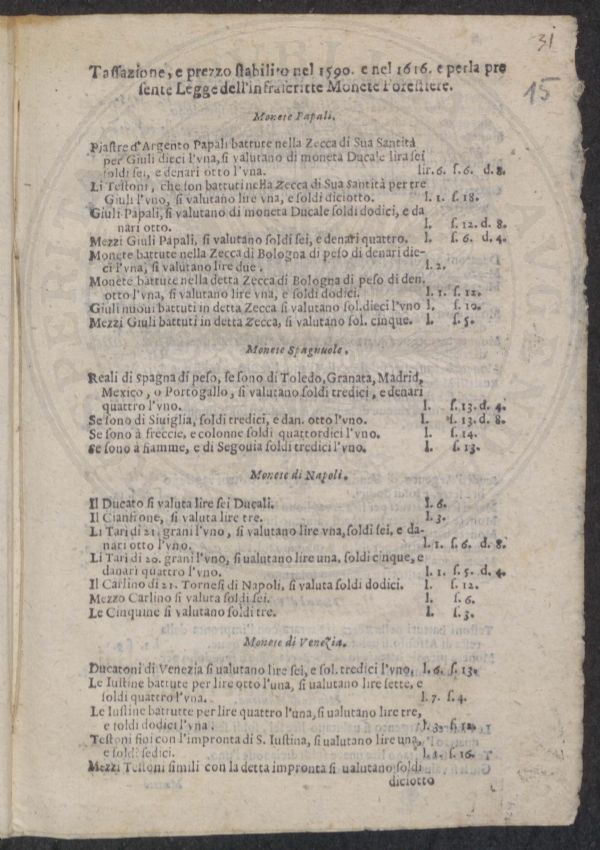 31
15
Tassazione, e prezzo stabilito nel 1590. e nel 1616. e perla pre
sente Legge dell'infrascritte Monete Forestiere.
Monete Papali.
Piastre d'Argento Papali battute nella Zecca di Sua Santità
per Giuli dieci l'vna, si valutano di moneta Ducale lira sei
soldi sei, e denari otto l'vna. lir. 6. s. 6. d. 8.
Li Testoni, che son battuti nella Zecca di Sua Santità per tre
Giuli l'vno, si valutano lire vna, e soldi diciotto. l. 1. s. 18.
Giuli Papali, si valutano di moneta Ducale soldi dodici, e da
nari otto. l. s. 12. d. 8.
Mezzi Giuli Papali, si valutano soldi sei, e denari quattro. l. s. 6. d. 4.
Monete battute nella Zecca di Bologna di peso di denari die-
ci l'vna, si valutano lire due. l. 2.
Monete battute nella detta Zecca di Bologna di peso di den.
otto l'vna, si valutano lire vna, e soldi dodici. l. 1. s. 12.
Giuli nuoui battuti in detta Zecca si valutano sol. dieci l'vno l. s. 10.
Mezzi Giuli battuti in detta Zecca, si valutano sol. cinque. l. s. 5.
Monete Spagnuole.
Reali di Spagna di peso, se sono di Toledo, Granata, Madrid,
Mexico, o Portogallo, si valutano soldi tredici, e denari
quattro l'vno. l. s. 13. d. 4.
Se sono di Siuiglia, soldi tredici, e dan. otto l'vno. l. s. 13. d. 8.
Se sono à freccie, e colonne soldi quattordici l'vno. l. s. 14.
Se sono à fiamme, e di Segouia soldi tredici l'vno. l. s. 13.
Monete di Napoli.
Il Ducato si valuta lire sei Ducali. l. 6.
Il Cianfrone, si valuta lire tre. l. 3.
Li Tari di 21. grani l'vno, si valutano lire vna, soldi sei, e da-
nari otto l'vno. l. 1. s. 6. d. 8.
Li Tari di 20. grani l'vno, si ualutano lire una, soldi cinque, e
danari quattro l'vno. l. 1. s. 5. d. 4.
Il Carlino di 21. Tornesi di Napoli, si valuta soldi dodici. l. s. 12.
Mezzo Carlino si valuta soldi sei. l. s. 6.
Le Cinquine si valutano soldi tre. l. s. 3.
Monete di Venezia.
Ducatoni di Venezia si ualutano lire sei, e sol. tredici l'vno, l. 6. s. 13.
Le Iustine battute per lire otto l'una, si ualutano lire sette, e
soldi quattro l'vna. l. 7. s. 4.
Le Iustine battutte per lire quattro l'una, si valutano lire tre,
e soldi dodici l'vna. l. 3. s. 12.
Testoni fioi con l'impronta di S. Iustina, si valutano lire una,
e soldi sedici. l. 1. s. 16.
Mezzi Testoni simili con la detta impronta si ualutano soldi
diciotto